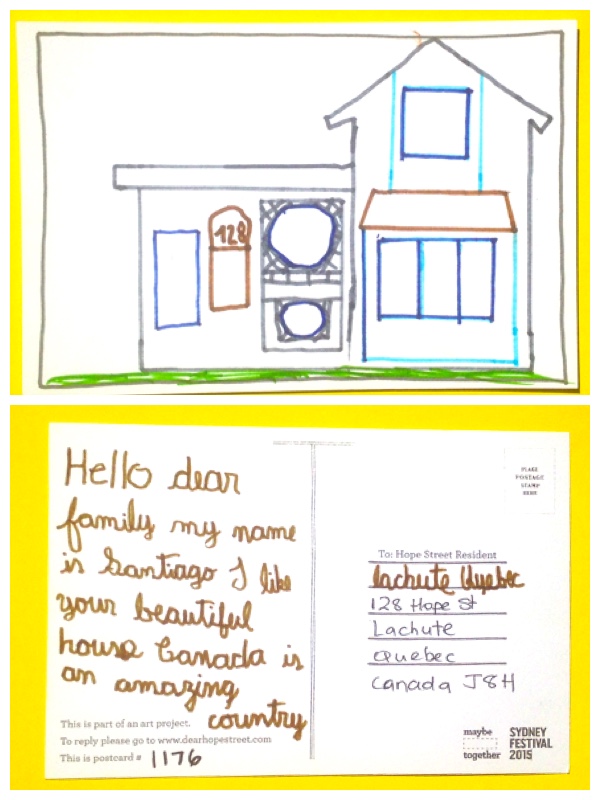 128
Hello dear
family my name
is Santiago I like
your beautiful
house Canada is
an amazing
country
This is part of an art project.
To reply please go to www.dearhopestreet.com
This is postcard # 1176
PLACE
POSTAGE
STAMP
HERE
To: Hope Street Resident
Lachute Quebec
128 Hope St
Lachute
Quebec
Canada J8H
maybe
together
SYDNEY
FESTIVAL
2015